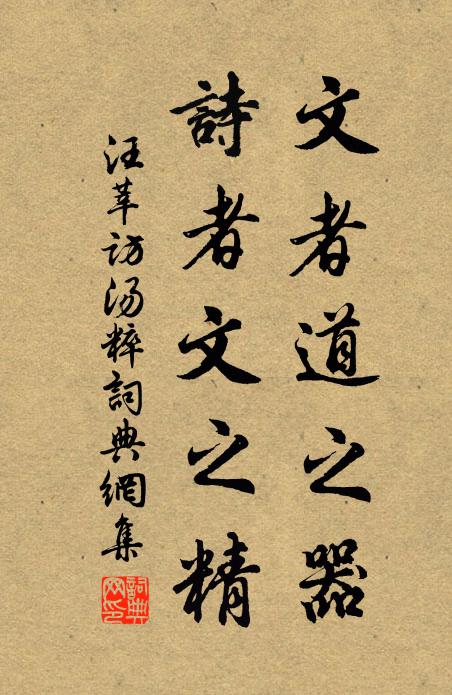 文者道之器
詩者文之精
汪莘访汤粹詞典網集
詞典网印